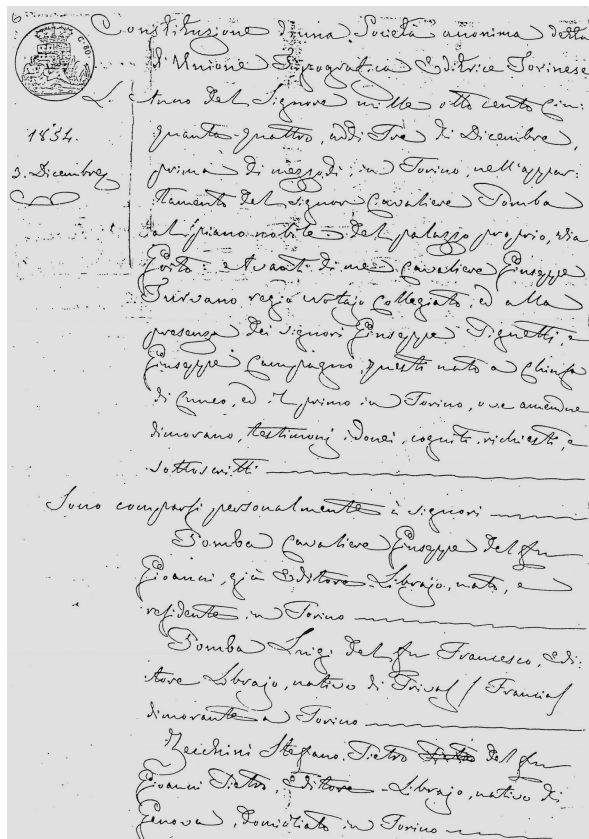 6
Constituzione d'una Società anonima della
di Unione Tipografica Editrice Torinese
L'Anno del Signore mille otto cento Cin:
1854.
quanta quattro, addì Tre di Dicembre,
3. Dicembre
prima di mezzodì, in Torino, nell'appar:
tamento del signor Cavaliere Pomba
al piano nobile del palazzo proprio, via
et avanti di me Cavaliere Giuseppe
Turvano regio Notajo Collegiato, ed alla
presenza dei signori Giuseppe Tignetti, e
Giuseppe Campagno, questi nato a Chiusa
di Cuneo, ed il primo in Torino, ove amendue
dimorano, testimonj idonei, cogniti, richiesti, e
sottoscritti
Sono comparsi personalmente i signori
Pomba Cavaliere Giuseppe del fu
Gioanni, già Editore-Librajo, nato, e
residente in Torino
Pomba Luigi del fu Francesco, Edi:
tore Librajo, nativo di (Francia)
dimorante a Torino
Zecchini Stefano Pietro del fu
Gioanni Pietro, Editore-Librajo, nativo di
Genova, domiciliato in Torino